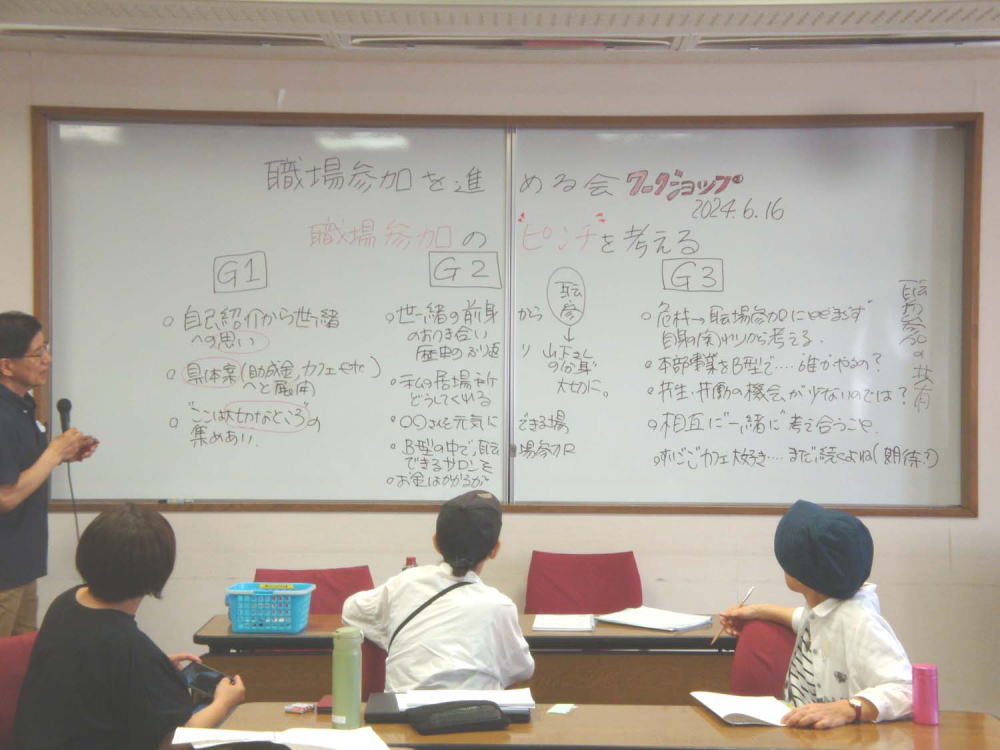 職場参加を進める会 ワークショップ
2024.6.16
職場参加の"ピンチ"を考える
G1
○自己紹介から世一緒
への思い
○具体案(助成金,カフェetc)
へと展開
○"ここは大切なところ"の
集めあい.
G2
○世一緒の前身から
のおつき合い
歴史のふり返り
○私の居場所
どうしてくれる
○〇〇さんを元気にできる場
○B型の中で職場参加
できるサロンを
○お金はかかるが
職参
↓
山下さん
の分身
大切に。
G3
○危機→職場参加にとどまらず
自身の関わりから考える.
○本部事業をB型で….誰がやるの?
○共生・共働の機会が少ないのでは?
○相互に"一緒に"考え合うこと
○すいごごカフェ大好き….まだ続くよね(期待?)
職場参加の共有